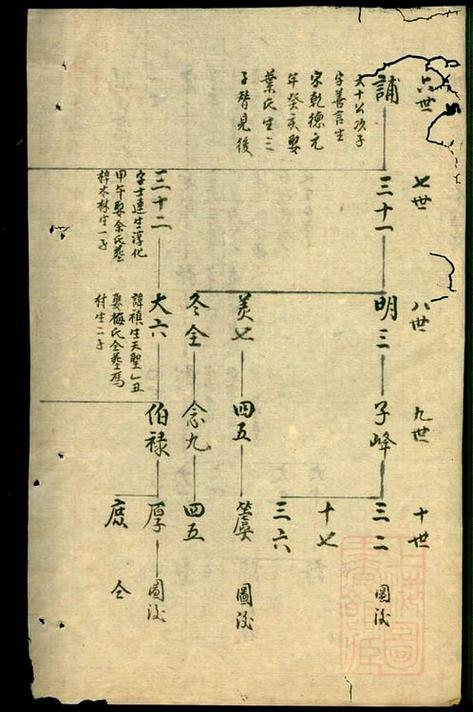 六世
七世
八世
九世
十世
誧
三十一
明三
子峰
三二
圖後
十七
三六
大十公次子
字善言生
宋乾德元
年癸亥娶
葉氏生三
子替見後
美七
四五
冬全
念九
四五
三十二
大六
伯祿
厚
圖後
字士達生淳化
甲午娶余氏葬
梓木林生一子
諱禎生天聖乙丑
娶梅氏全葬馬
村生二子
庶
仝